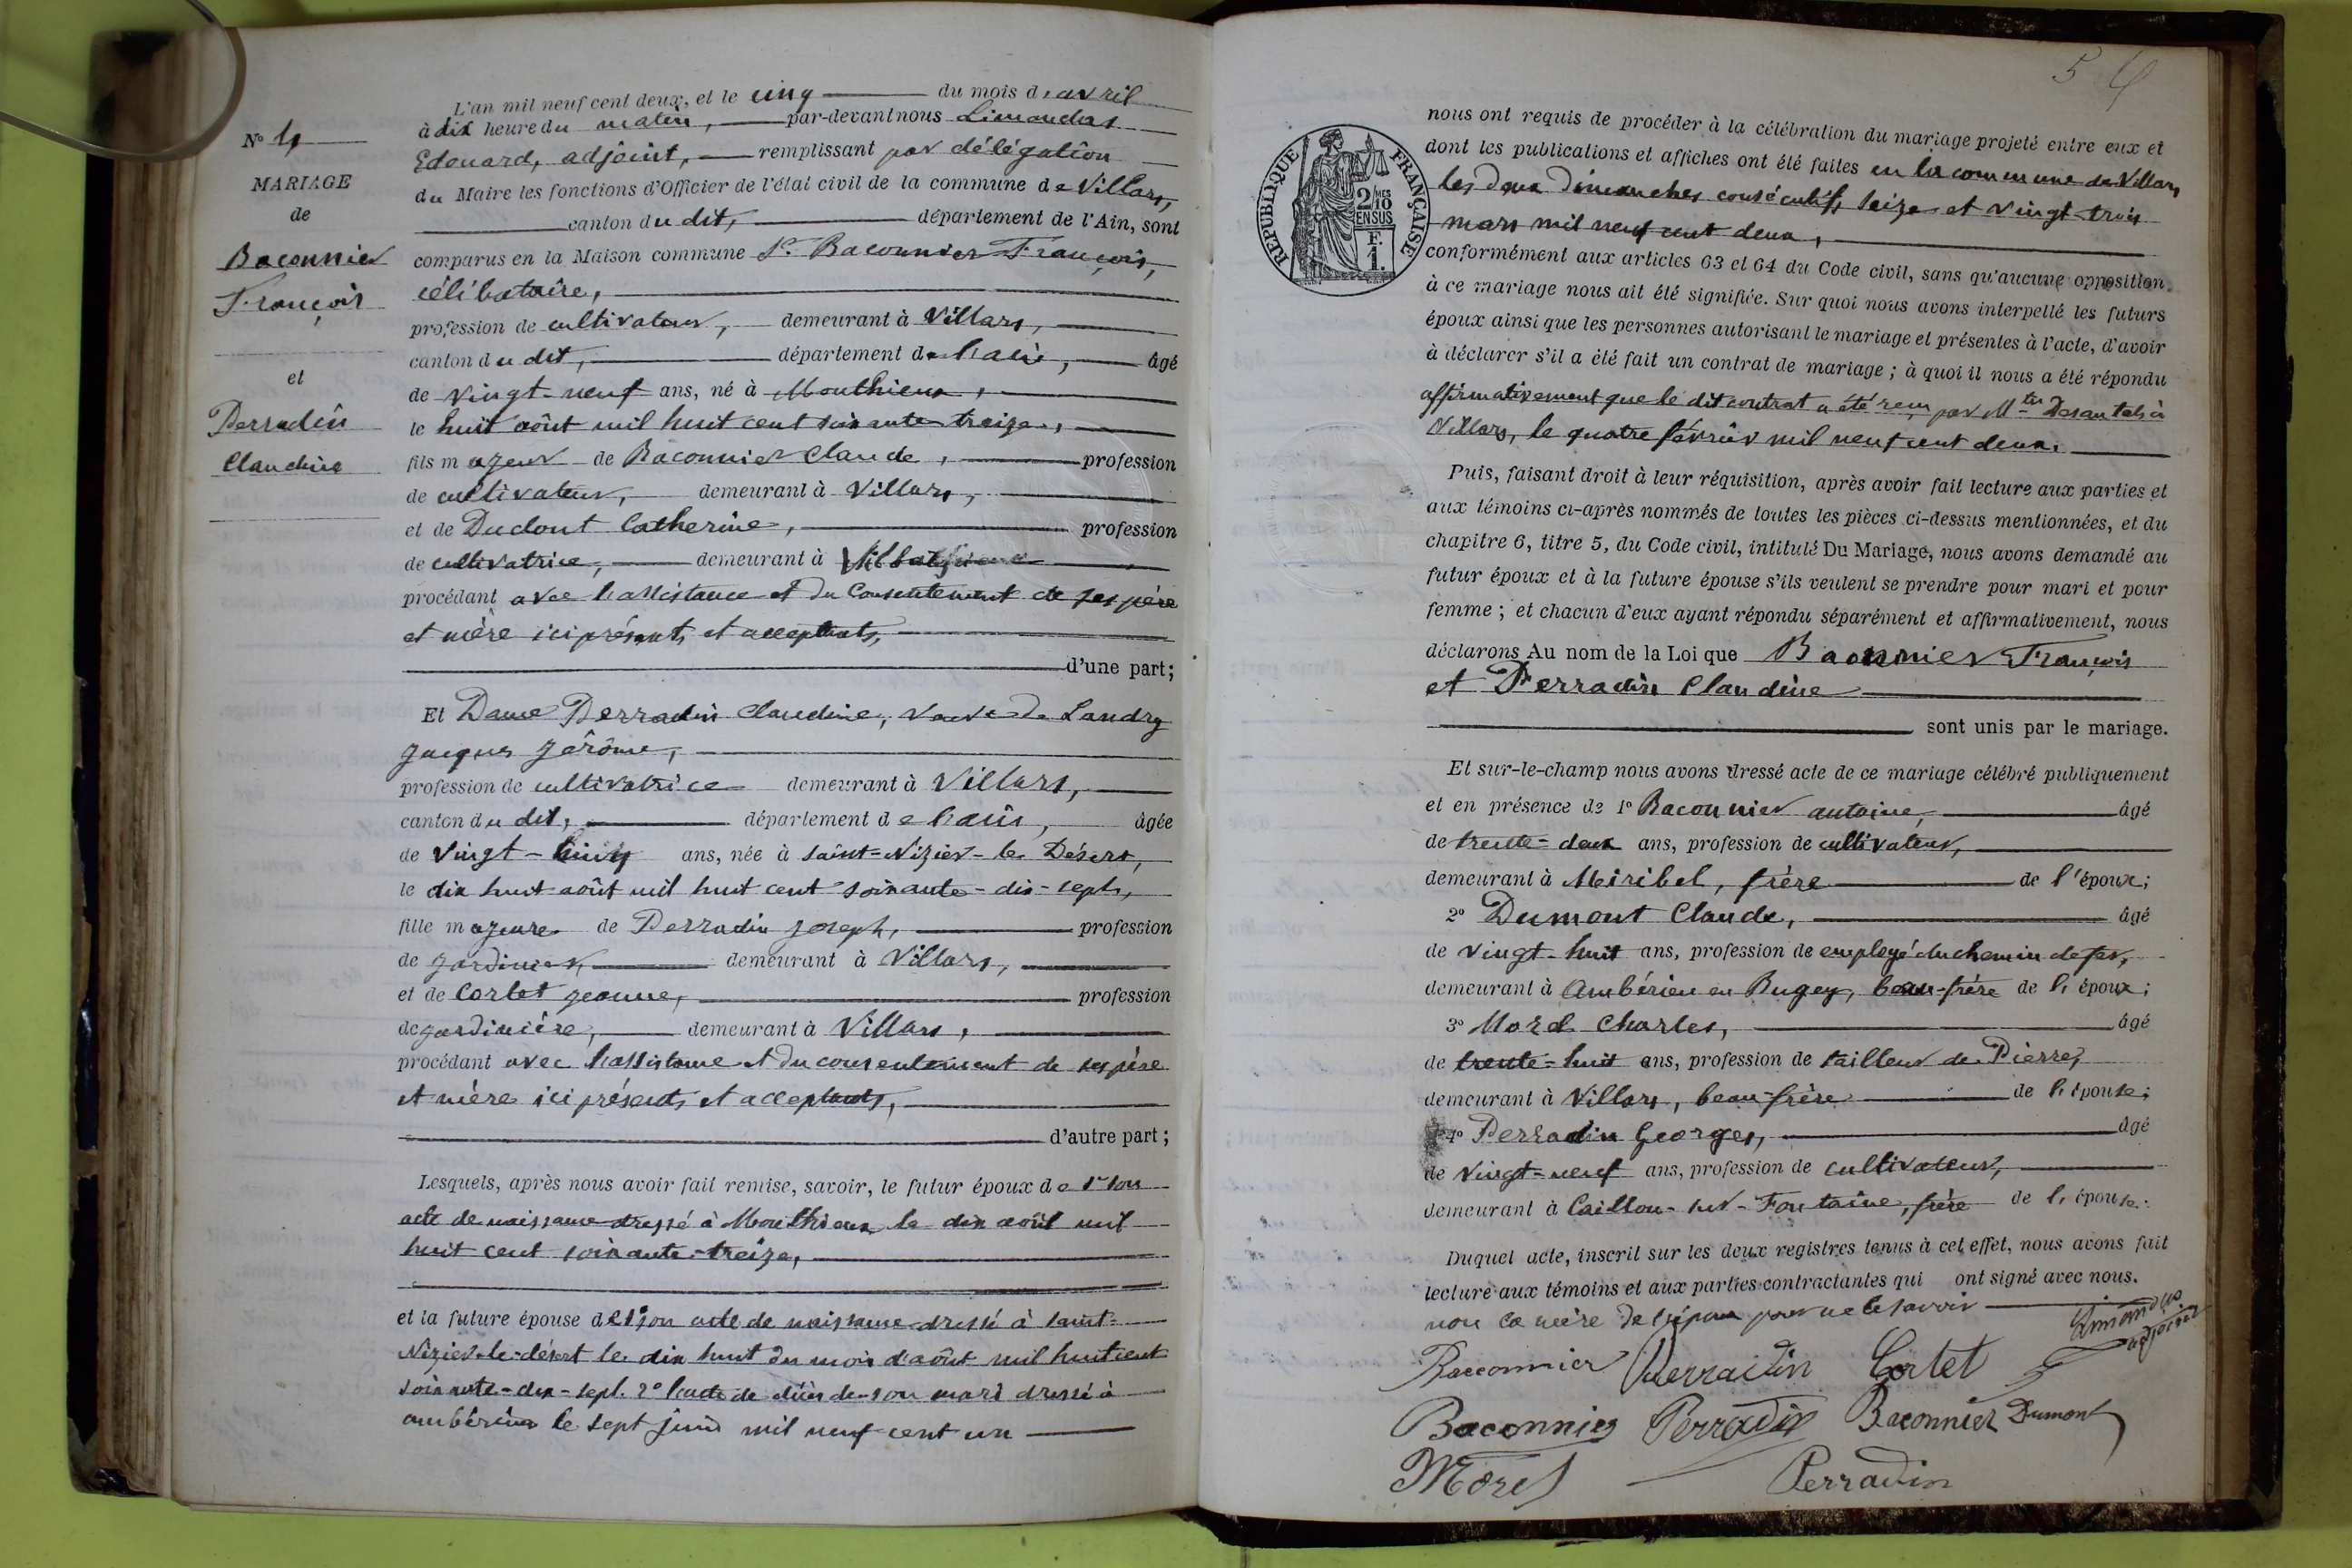 L'an mil neuf cent deux, et le cinq du mois d'avril
à dix heure du matin, par-devant nous Limandas
Edouard, adjoint, remplissant par délégation
du Maire les fonctions d'Officier de l'état civil de la commune de Villars,
canton du dit, département de l'Ain, sont
comparus en la Maison commune Sr. Baconnier François,
célibataire,
profession de cultivateur, demeurant à Villars,
canton du dit, département de l'ain, âgé
de vingt-neuf ans, né à Monthieux,
le huit août mil huit cent soixante treize,
fils majeur de Baconnier Claude, profession
de cultivateur, demeurant à Villars,
et de Duclout Catherine, profession
de cultivatrice, demeurant à
procédant avec l'assistance et du Consentement de ses père
et mère ici présents et acceptants,
d'une part;
Et Dame Perradin Claudine, veuve de Landry
Jacques Jérôme,
profession de cultivatrice demeurant à Villars,
canton du dit, département de l'ain, âgée
de vingt- ans, née à saint-Nizier-le Désert,
le dix huit août mil huit cent soixante-dix-sept,
fille majeure de Perradin Joseph, profession
de jardinier, demeurant à Villars,
et de Cortet Jeanne, profession
de jardinière, demeurant à Villars,
procédant avec l'assistance et du consentement de ses père
et mère ici présents et acceptants,
d'autre part;
Lesquels, après nous avoir fait remise, savoir, le futur époux de 1º son
acte de naissance dressé à Monthieux le dix août mil
huit cent soixante-treize,
et la future épouse de 1º son acte de naissance dressé à saint-
Nizier-le-désert le dix huit du mois d'août mil huit cent
soixante-dix-sept. 2º l'acte de décès de son mari dressé à
ambérieu le sept juin mil neuf cent un
Nº 4
MARIAGE
de
Baconnier
François
et
Perradin
Claudine
5 4
RÉPUBLIQUE FRANÇAISE
2 MES
10
EN SUS
F.
1.
nous ont requis de procéder à la célébration du mariage projeté entre eux et
dont les publications et affiches ont été faites en la commune de Villars
les deux Dimanches consécutifs seize et vingt-trois
mars mil neuf cent deux,
conformément aux articles 63 et 64 du Code civil, sans qu'aucune opposition
à ce mariage nous ait été signifiée. Sur quoi nous avons interpellé les futurs
époux ainsi que les personnes autorisant le mariage et présentes à l'acte, d'avoir
à déclarer s'il a été fait un contrat de mariage; à quoi il nous a été répondu
affirmativement que le dit contrat a été reçu par Mtre Desautels à
Villars, le quatre février mil neuf cent deux.
Puis, faisant droit à leur réquisition, après avoir fait lecture aux parties et
aux témoins ci-après nommés de toutes les pièces ci-dessus mentionnées, et du
chapitre 6, titre 5, du Code civil, intitulé Du Mariage, nous avons demandé au
futur époux et à la future épouse s'ils veulent se prendre pour mari et pour
femme; et chacun d'eux ayant répondu séparément et affirmativement, nous
déclarons Au nom de la Loi que Baconnier François
et Perradin Claudine
sont unis par le mariage.
Et sur-le-champ nous avons dressé acte de ce mariage célébré publiquement
et en présence de 1º Baconnier antoine, âgé
de trente-deux ans, profession de cultivateur,
demeurant à Miribel, frère de l'époux;
2º Dumont Claude, âgé
de vingt-huit ans, profession de employé du chemin de fer,
demeurant à Ambérieu en Bugey, beau-frère de l'époux;
3º Morel Charles, âgé
de trente-huit ans, profession de tailleur de Pierre,
demeurant à Villars, beau-frère de l'épouse;
4º Perradin Georges, âgé
de vingt-neuf ans, profession de cultivateur,
demeurant à Caillou-sur-Fontaine, frère de l'épouse.
Duquel acte, inscrit sur les deux registres tenus à cet effet, nous avons fait
lecture aux témoins et aux parties contractantes qui ont signé avec nous.
non la mère de l'époux pour ne le savoir
Limandas
adjoint
Baconnier Perradin Cortet
Baconnier Perradin Baconnier Dumont
Morel Perradin